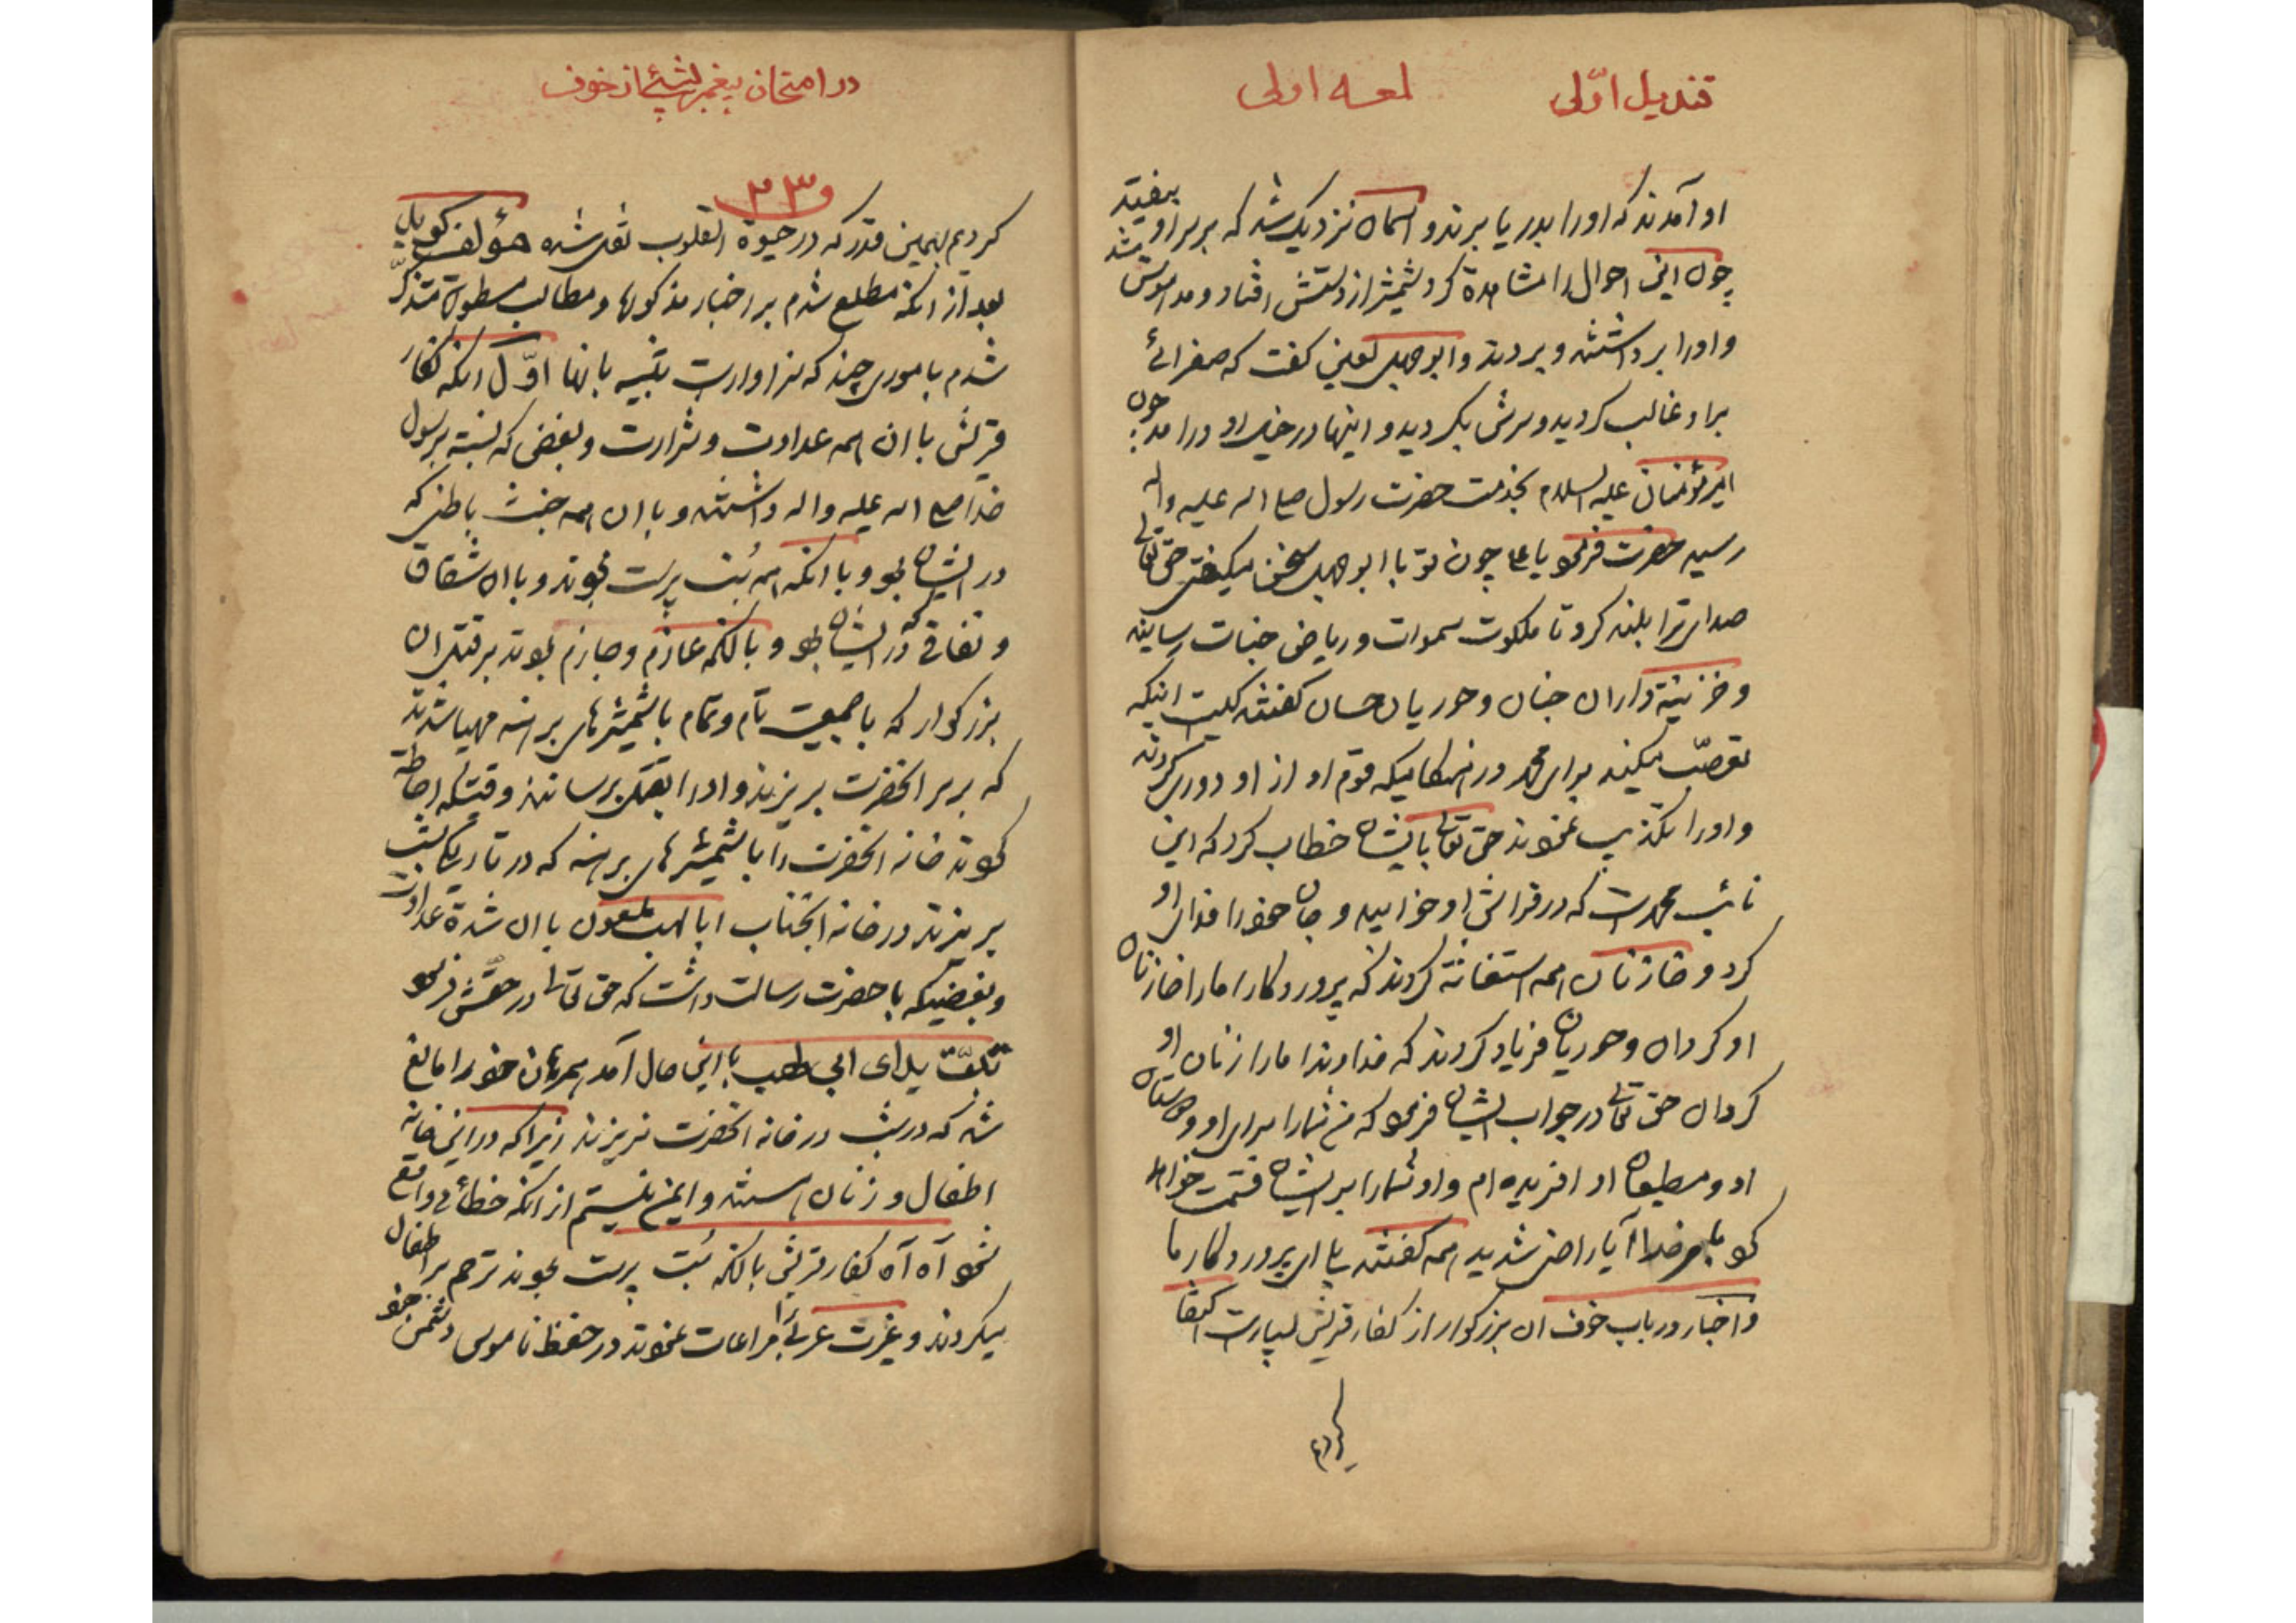 قندیل اوّلی
لمعه اولی
او آمدند که او را بدریا برند و آسمان نزدیک شد که بر سر او بیفتد
چون این احوال را مشاهده کرد شمشیر از دستش افتاد و مدهوش شد
و او را برداشتند و بردند و ابوجهل لعین گفت که صفرائے
بر او غالب گردیده و سرش بگردیده و اینها در خیال او درآمد چون
امیر مؤمنان علیه السلام بخدمت حضرت رسول صلی الله علیه واله
رسید حضرت فرمود یا علی چون تو با ابوجهل سخن میگفتی حق تعالی
صدای ترا بلند کرد تا ملکوت سموات و ریاض جنات رسانید
و خزینه داران جنان و حوریان حسان گفتند کیست اینکه
تعصّب میکند برای محمد در هنگامیکه قوم او از او دوری کردند
و او را تکذیب نمودند حق تعالی بایشان خطاب کرد که این
نائب محمد است که در فراش او خوابیده و جان خود را فدای او
کرد و خازنان همه استغاثه کردند که پروردگارا ما را خازنان
او گردان و حوریان فریاد کردند که خداوندا ما را زنان او
گردان حق تعالی در جواب ایشان فرمود که من شما را برای او و دوستان
او و مطیعان او آفریده ام و او شما را بر ایشان قسمت خواهد
نمود بامر خدا آیا راضی شدید همه گفتند بلی ای پروردگار ما
و اخبار در باب خوف ان بزرگوار از کفار قریش بسیارست اکتفا
کردیم
در امتحان پیغمبر بشئ از خوف
و ۲۳
کردیم بهمین قدر که در حیوة القلوب نقل شده مؤلف گوید
بعد از انکه مطلع شدم بر اخبار مذکوره و مطالب مسطوره متذکّر
شدم باموری چند که سزاوارست تنبیه بانها اوّل انکه کفار
قریش با ان همه عداوت و شرارت و بغضی که نسبت برسول
خدا صلی الله علیه واله داشتند و با ان همه خبث باطنی که
در ایشان بود و با انکه همه بُت پرست بودند و با ان شقاق
و نفاقی که در ایشان بود و با انکه عازم و جازم بودند بر قتل ان
بزرگوار که با جمعیت تام و تمام با شمشیرهای برهنه مهیا شدند
که بر سر انحضرت بریزند و او را بقتل برسانند وقتیکه احاطه
نمودند خانه انحضرت را با شمشیرهای برهنه که در تاریکی شب
بریزند در خانه انجناب ابا لهب ملعون با ان شدة عداوت
و بغضیکه با حضرت رسالت داشت که حق تعالی در حقش فرمود
تبّت یدا ابی لهب با این حال آمد همرهان خود را مانع
شد که در شب در خانه انحضرت نریزند زیرا که در این خانه
اطفال و زنان هستند و ایمن نیستم از انکه خطائی واقع
شود آه آه کفار قریش با انکه بُت پرست بودند ترحم بر اطفال
میکردند و غیرت عربی را مراعات نمودند در حفظ ناموس دشمن خود